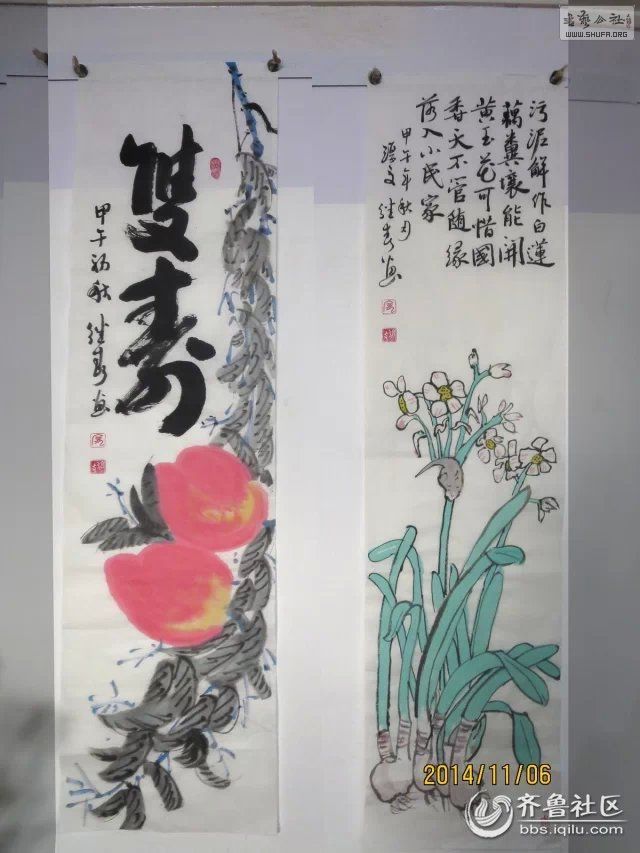 书艺公社
WWW.SHUFA.ORG
污泥解作白蓮
藕糞壤能開
黄玉花可惜國
香天不官隨缘
落入小民家
甲午年秋月
继春画
雙壽
甲午初秋 继春画
2014/11/06
齐鲁社区
bbs.iqilu.com